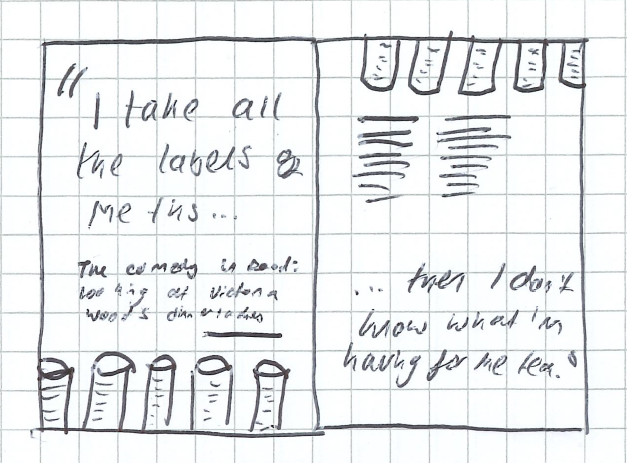 "I take all
the labels off
me tins...
The comedy in food:
looking at Victoria
Wood's dinnerladies
... then I don't
know what I'm
having for me tea."